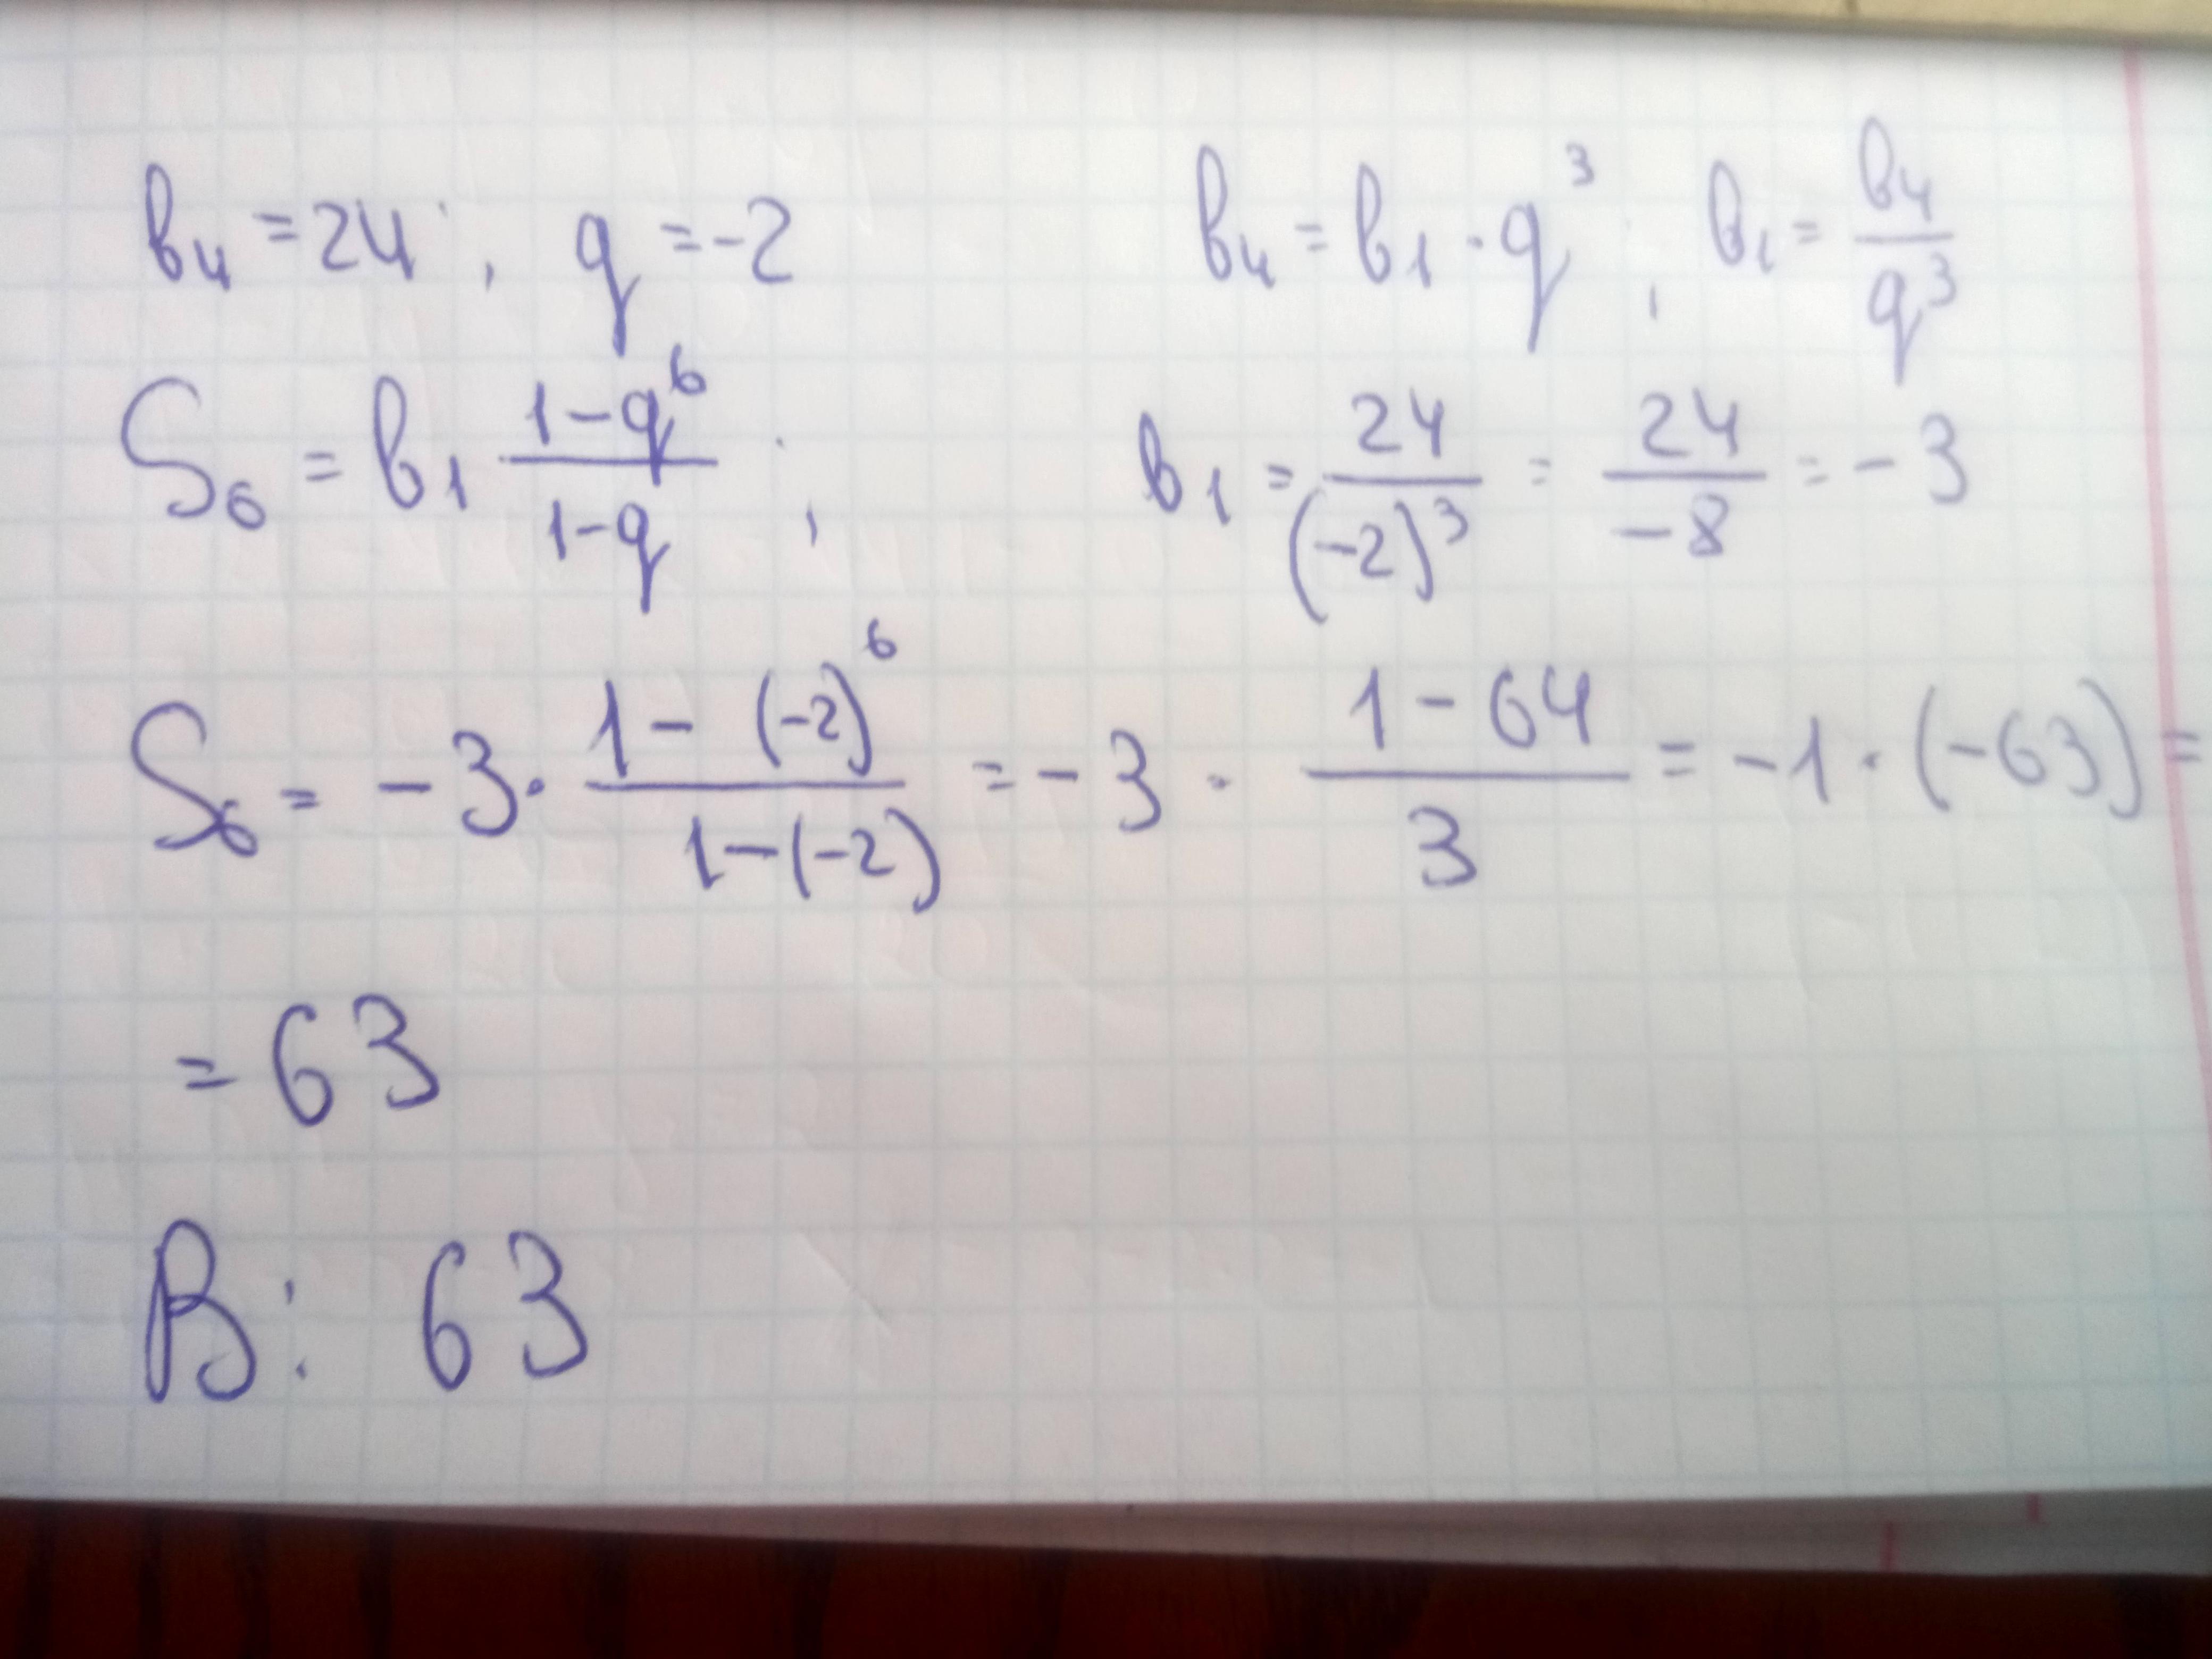 b₄ = 24, q = -2    b₄ = b₁ · q³, b₁ = b₄/q³
S₆ = b₁ (1-q⁶)/(1-q);    b₁ = 24/(-2)³ = 24/-8 = -3
S₆ = -3 · (1-(-2)⁶)/(1-(-2)) = -3 · (1-64)/3 = -1 · (-63) =
= 63
В: 63